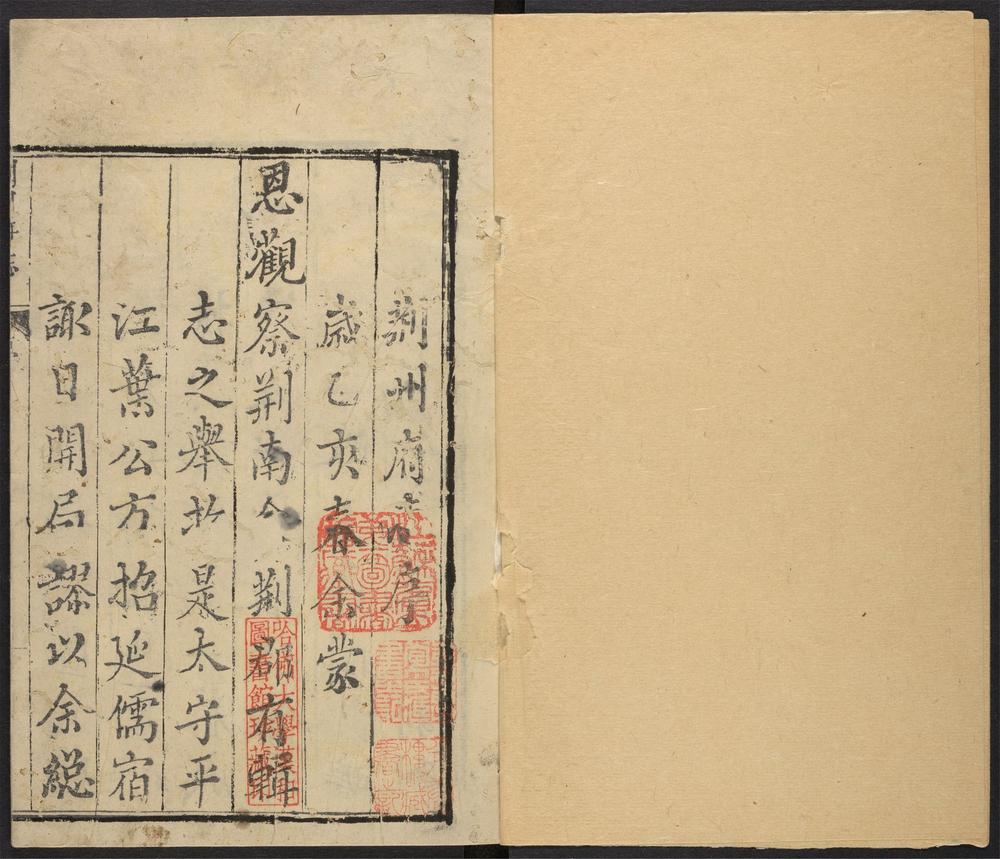 荆州府志序
歲乙亥春余蒙
恩觀察荆南今荆郡有輯
志之舉於是太守平
江葉公方招延儒宿
諏日開局謬以余総
哈佛大學漢和
圖書館珍藏印